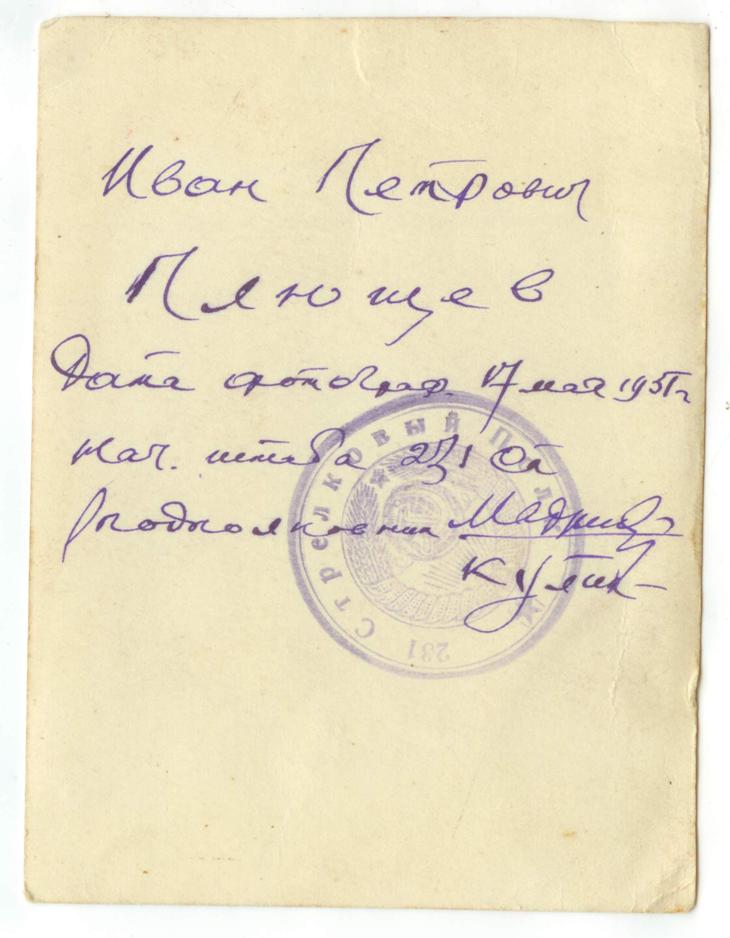 Иван Петрович
Плющев
Дата фотограф. 17 мая 1951 г
Нач. штаба 231 сп
подполковник
Кулик
СТРЕЛКОВЫЙ ПОЛК
231